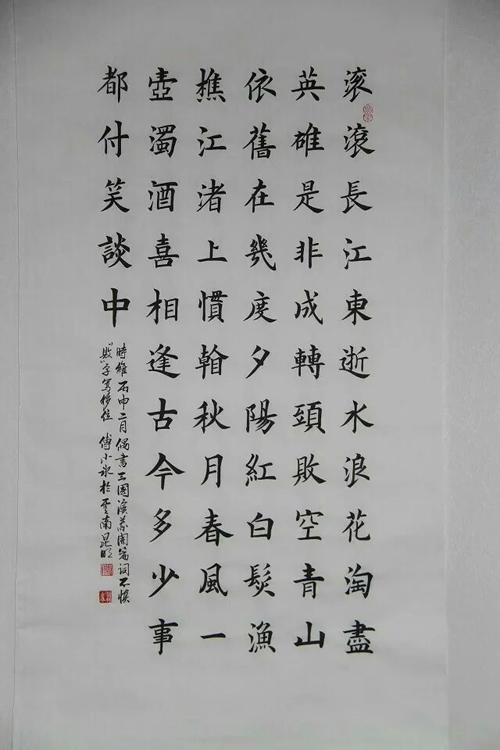 滚滾長江東逝水浪花淘盡
英雄是非成轉頭敗空青山
依舊在幾度夕陽紅白髮漁
樵江渚上慣翰秋月春風一
壺濁酒喜相逢古今多少事
都付笑談中
時維丙申二月偶書三國演義開篇词不慎
"敗"字寫移位 傅小冰於雲南昆明